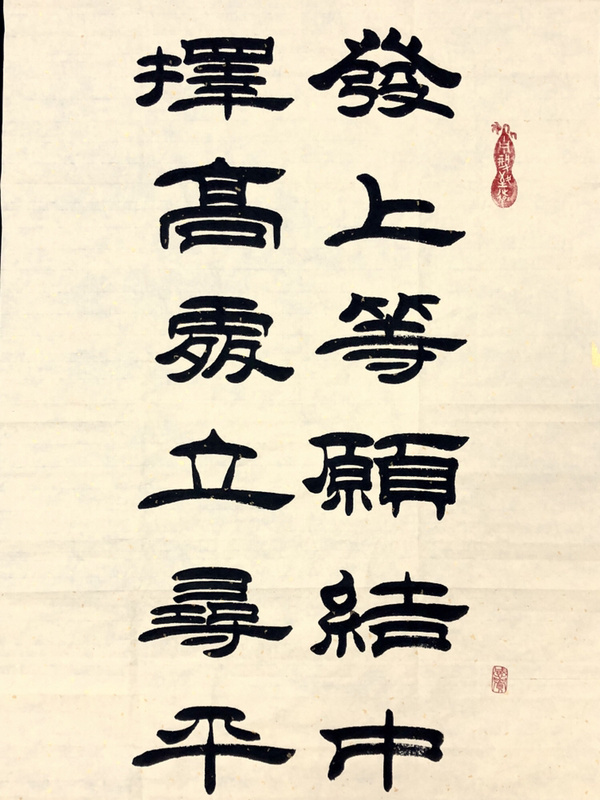 發上等願結中
擇高處立尋平